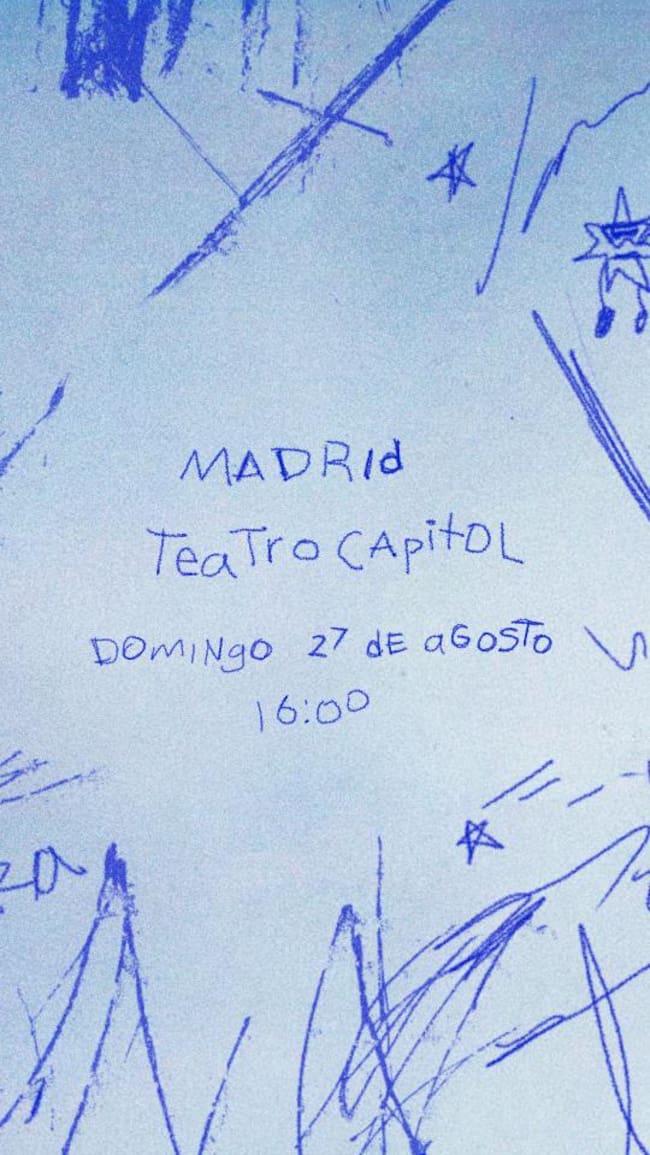 MADRId
TeaTro CApitOL
DOMINgO 27 dE aGOSTO
16:00